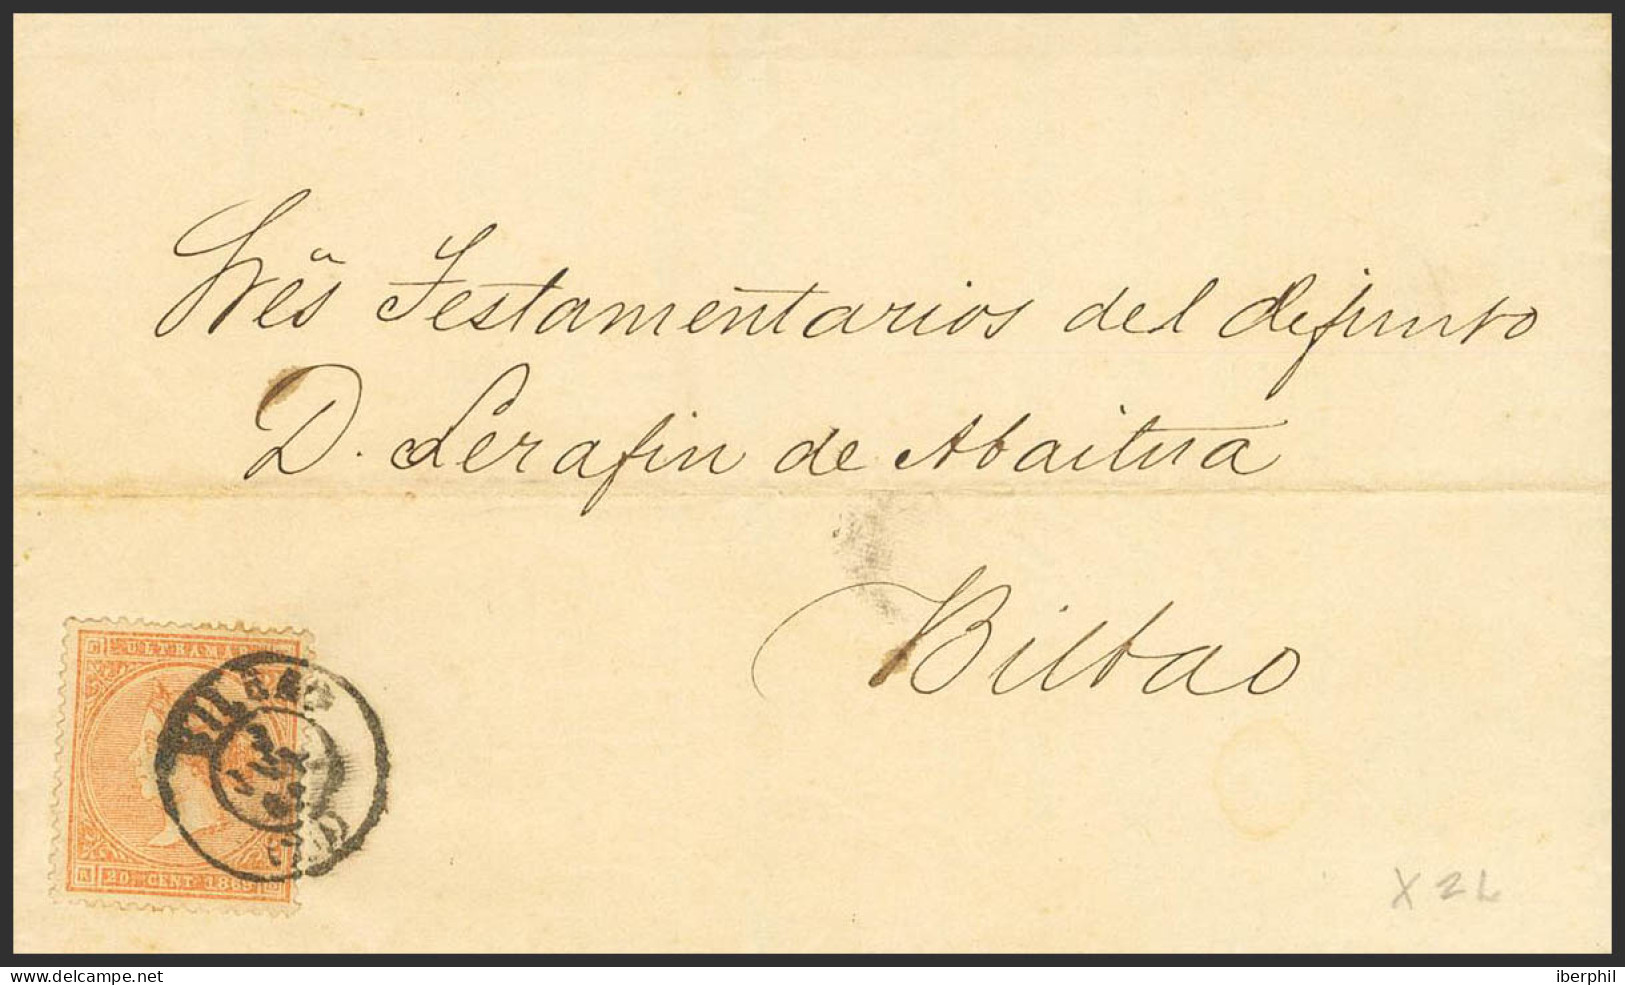 Sres Testamentarios del defunto
D. Serafin de Abaitua
Bilbao
ULTRAMAR
20 CENT 1869
BILBAO
X 2L
www.delcampe.net
iberphil